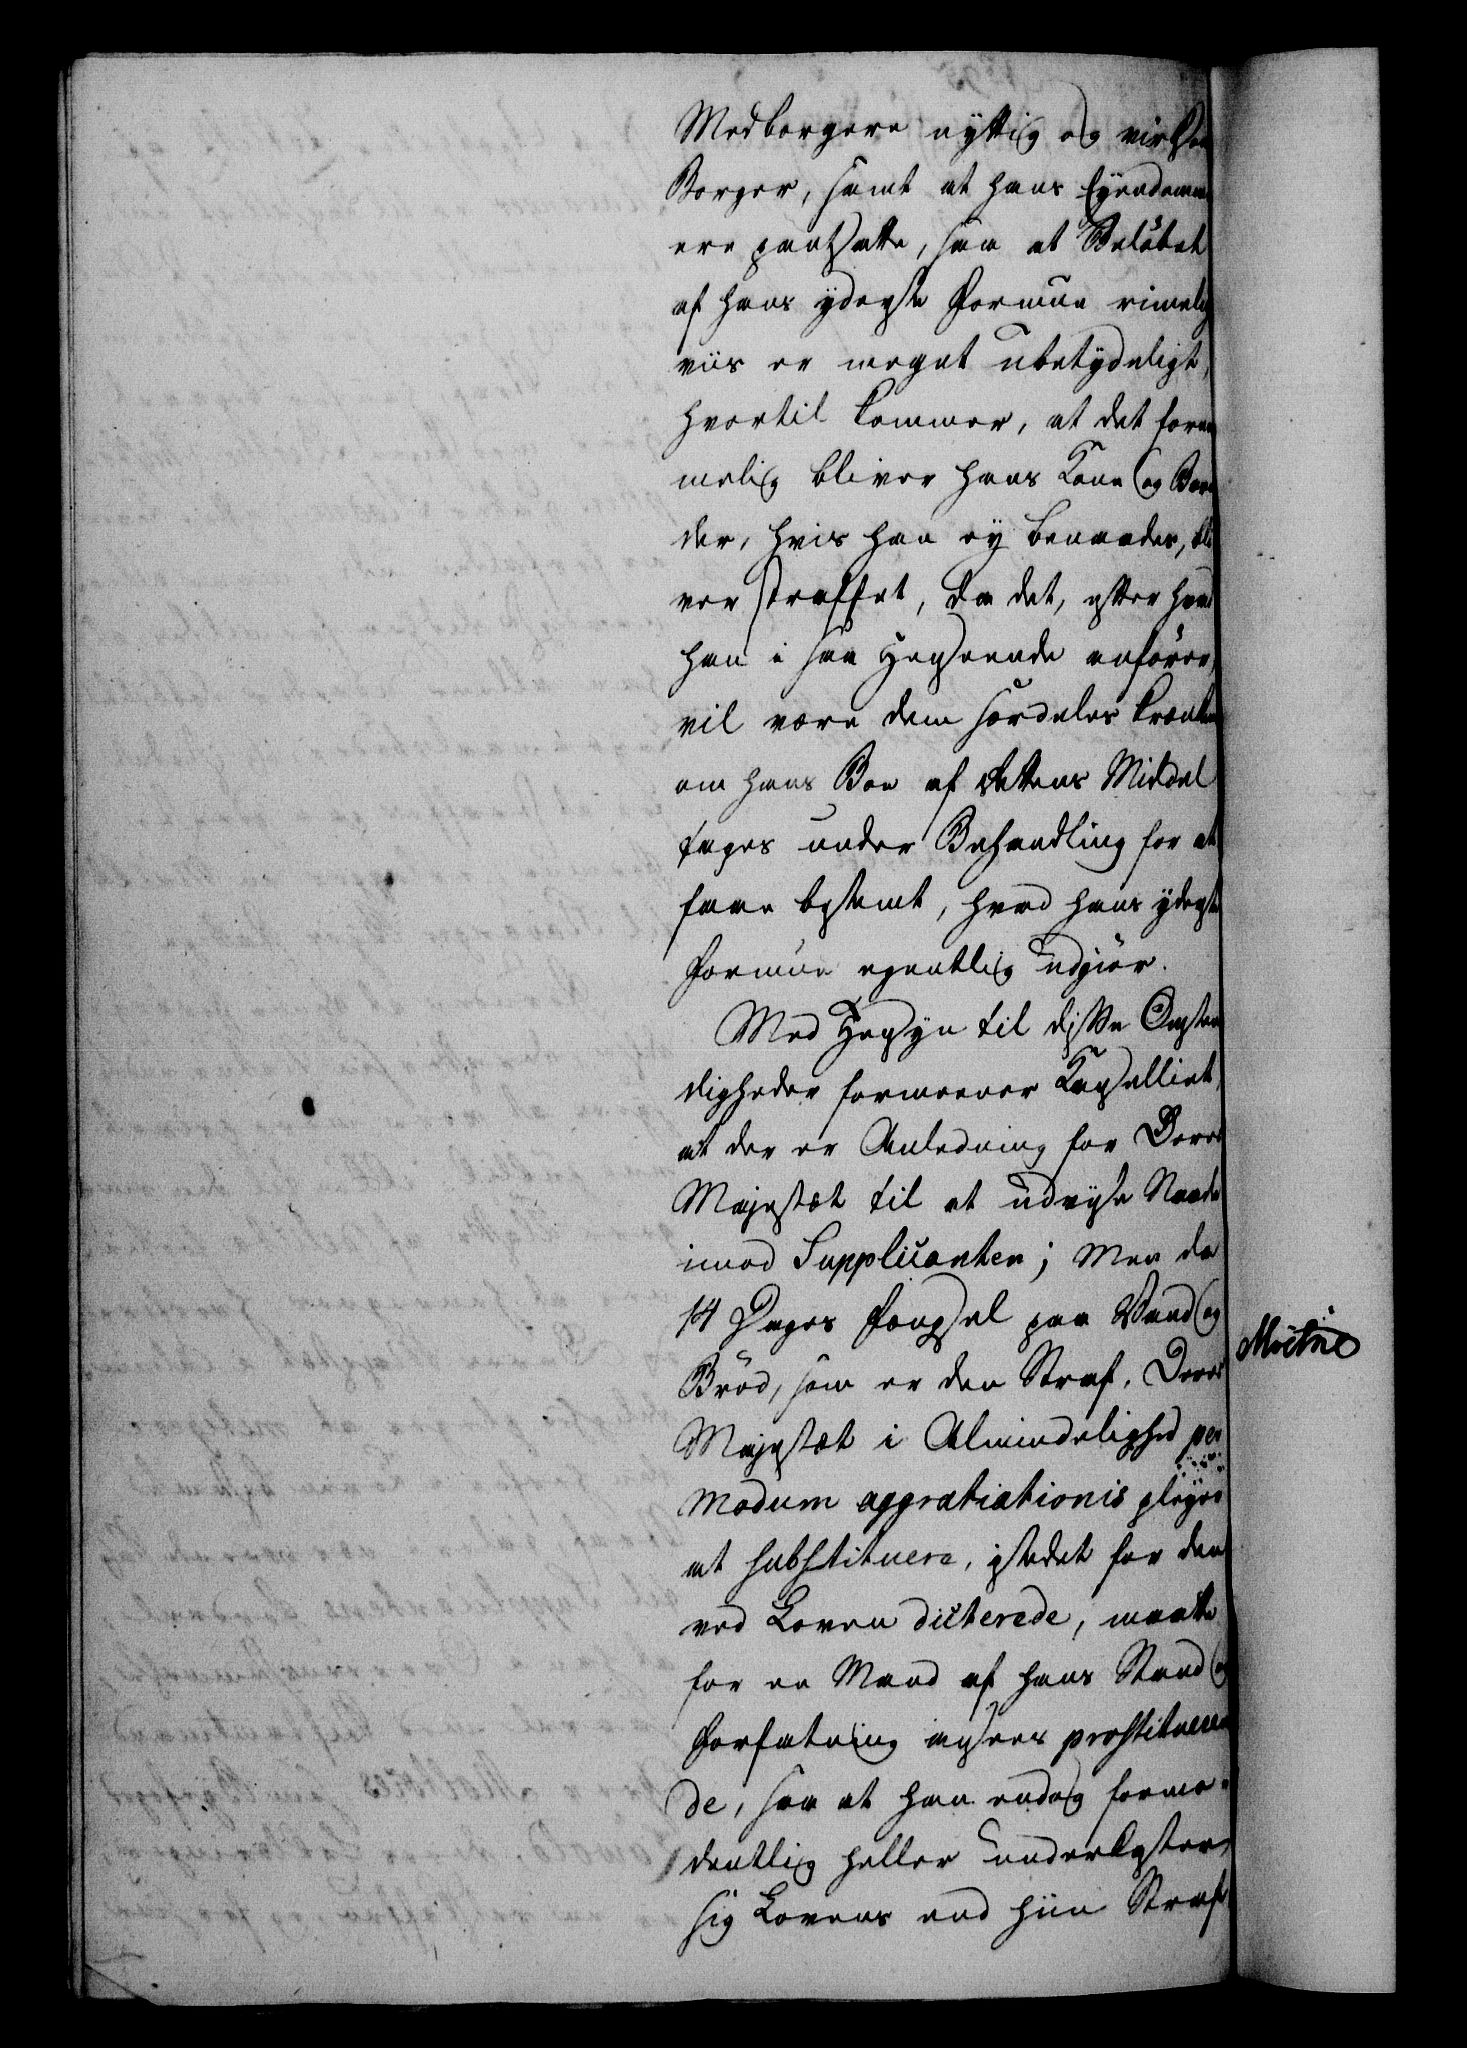 Medborgere nyttig og virksom
Borger, samt at hans Eyendomme
ere pantsatte, saa at Beløbet
af hans yderste Formue rimelig
viis er meget ubetydeligt,
hvortil kommer, at det forne
melig bliver hans Kone og Børn
der, hvis han ey benaades, bli
ver straffet, da det, efter hvad
han i saa Henseende anfører,
vil være dem særdeles krænkende
om hans Boe af Rettens Middel
tages under Behandling for at
faae bestemt, hvad hans yderste
Formue egentlig udgiør.
Med Hensyn til disse Omstæn
digheder formeener Cancelliet,
at der er Anledning for Deres
Majestæt til at udvise Naade
imod Supplicanten; Men da
14 Dages Fængsel paa Vand og
Brød, som er den Straf, Deres
Majestæt i Almindelighed per
modum aggratiationis pleyer
at substituere, istedet for den
ved Loven dicterede, maatte
for en Mand af hans Stand og
Forfatning ansees prostitueren
de, saa at han endog formo-
dentlig heller underkaster
sig Lovens end hiin Straf